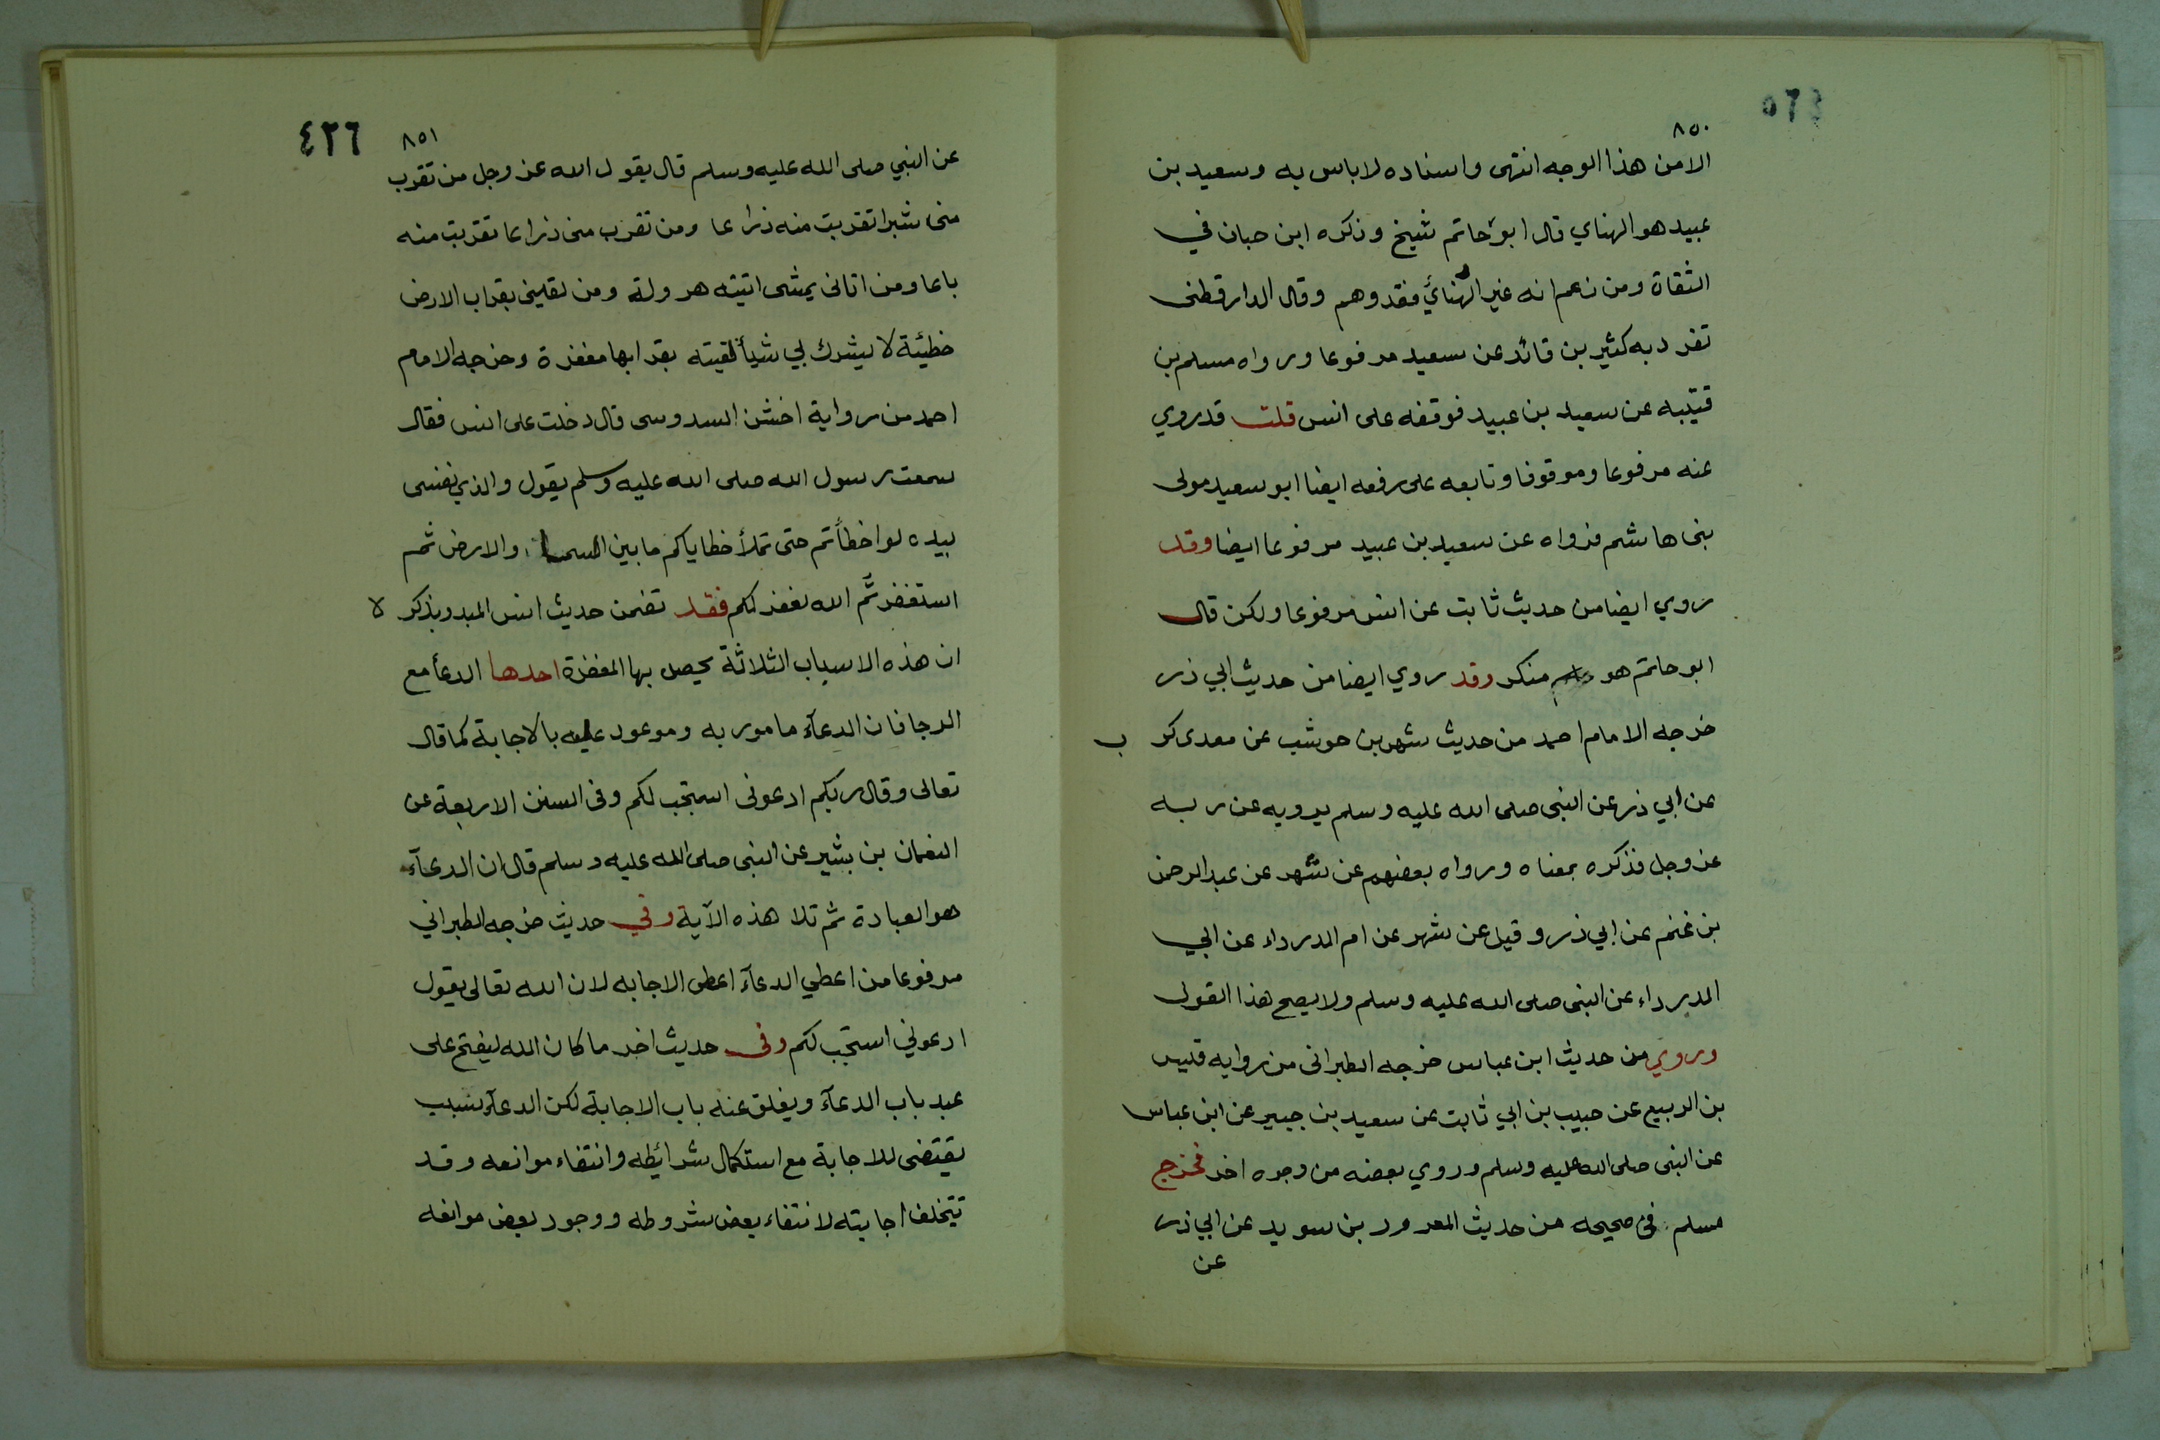 ٨٥٠
الا من هذا الوجه انتهى واسناده لا باس به وسعيد بن
عبيد هو الهناي قال ابو حاتم شيخ وذكره ابن حبان في
الثقاة ومن زعم انه غير الهنائي فقد وهم وقال الدارقطنى
تفرد به كثير بن فائد عن سعيد مرفوعا ورواه مسلم بن
قتيبه عن سعيد بن عبيد فوقفه على انس قلت قد روي
عنه مرفوعا وموقوفا وتابعه على رفعه ايضا ابو سعيد مولى
بنى هاشم فرواه عن سعيد بن عبيد مرفوعا ايضا وقد
روي ايضا من حديث ثابت عن انس مرفوعا ولكن قال
ابو حاتم هو منكر وقد روي ايضا من حديث ابي ذر
خرجه الامام احمد من حديث شهر بن حوشب عن معدى كر ب
عن ابي ذر عن النبى صلى الله عليه وسلم يرويه عن ربه
عز وجل فذكره بمعناه ورواه بعضهم عن شهر عن عبد الرحمن
بن غنم عن ابي ذر وقيل عن شهر عن ام الدرداء عن ابي
الدرداء عن النبى صلى الله عليه وسلم ولا يصح هذا القول
وروي من حديث ابن عباس خرجه الطبرانى من روايه قيس
بن الربيع عن حبيب بن ابي ثابت عن سعيد بن جبير عن ابن عباس
عن النبى صلى الله عليه وسلم وروي بعضه من وجوه اخر فخرج
مسلم فى صحيحه من حديث المعرور بن سويد عن ابي ذر
عن
٤٢٦
٨٥١
عن النبي صلى الله عليه وسلم قال يقول الله عز وجل من تقرب
منى شبرا تقربت منه ذراعا ومن تقرب منى ذراعا تقربت منه
باعا ومن اتانى يمشى اتيته هرولة ومن لقينى بقراب الارض
خطيئة لا يشرك بي شيأ لقيته بقرابها مغفرة وخرجه الامام
احمد من رواية اخشن السدوسى قال دخلت على انس فقال
سمعت رسول الله صلى الله عليه وسلم يقول والذي نفسى
بيده لو اخطأتم حتى تملأ خطاياكم ما بين السماء والارض ثم
استغفرتم الله لغفر لكم فقد تضمن حديث انس المبدو بذكر لا
ان هذه الاسباب الثلاثة يحصل بها المغفرة احدها الدعأ مع
الرجا فان الدعآء مامور به وموعود عليه بالاجابة كما قال
تعالى وقال ربكم ادعونى استجب لكم وفى السنن الاربعة عن
النعمان بن بشير عن النبى صلى الله عليه وسلم قال ان الدعآء
هو العبادة ثم تلا هذه الآية وفي حديث خرجه الطبراني
مرفوعا من اعطي الدعآء اعطى الاجابه لان الله تعالى يقول
ادعوني استجب لكم وفى حديث اخر ما كان الله ليفتح على
عبد باب الدعآء ويغلق عنه باب الاجابة لكن الدعآء سبب
يقتضى للاجابة مع استكمال شرائطه وانتفاء موانعه وقد
تتخلف اجابته لانتفاء بعض شروطه ووجود بعض موانعه